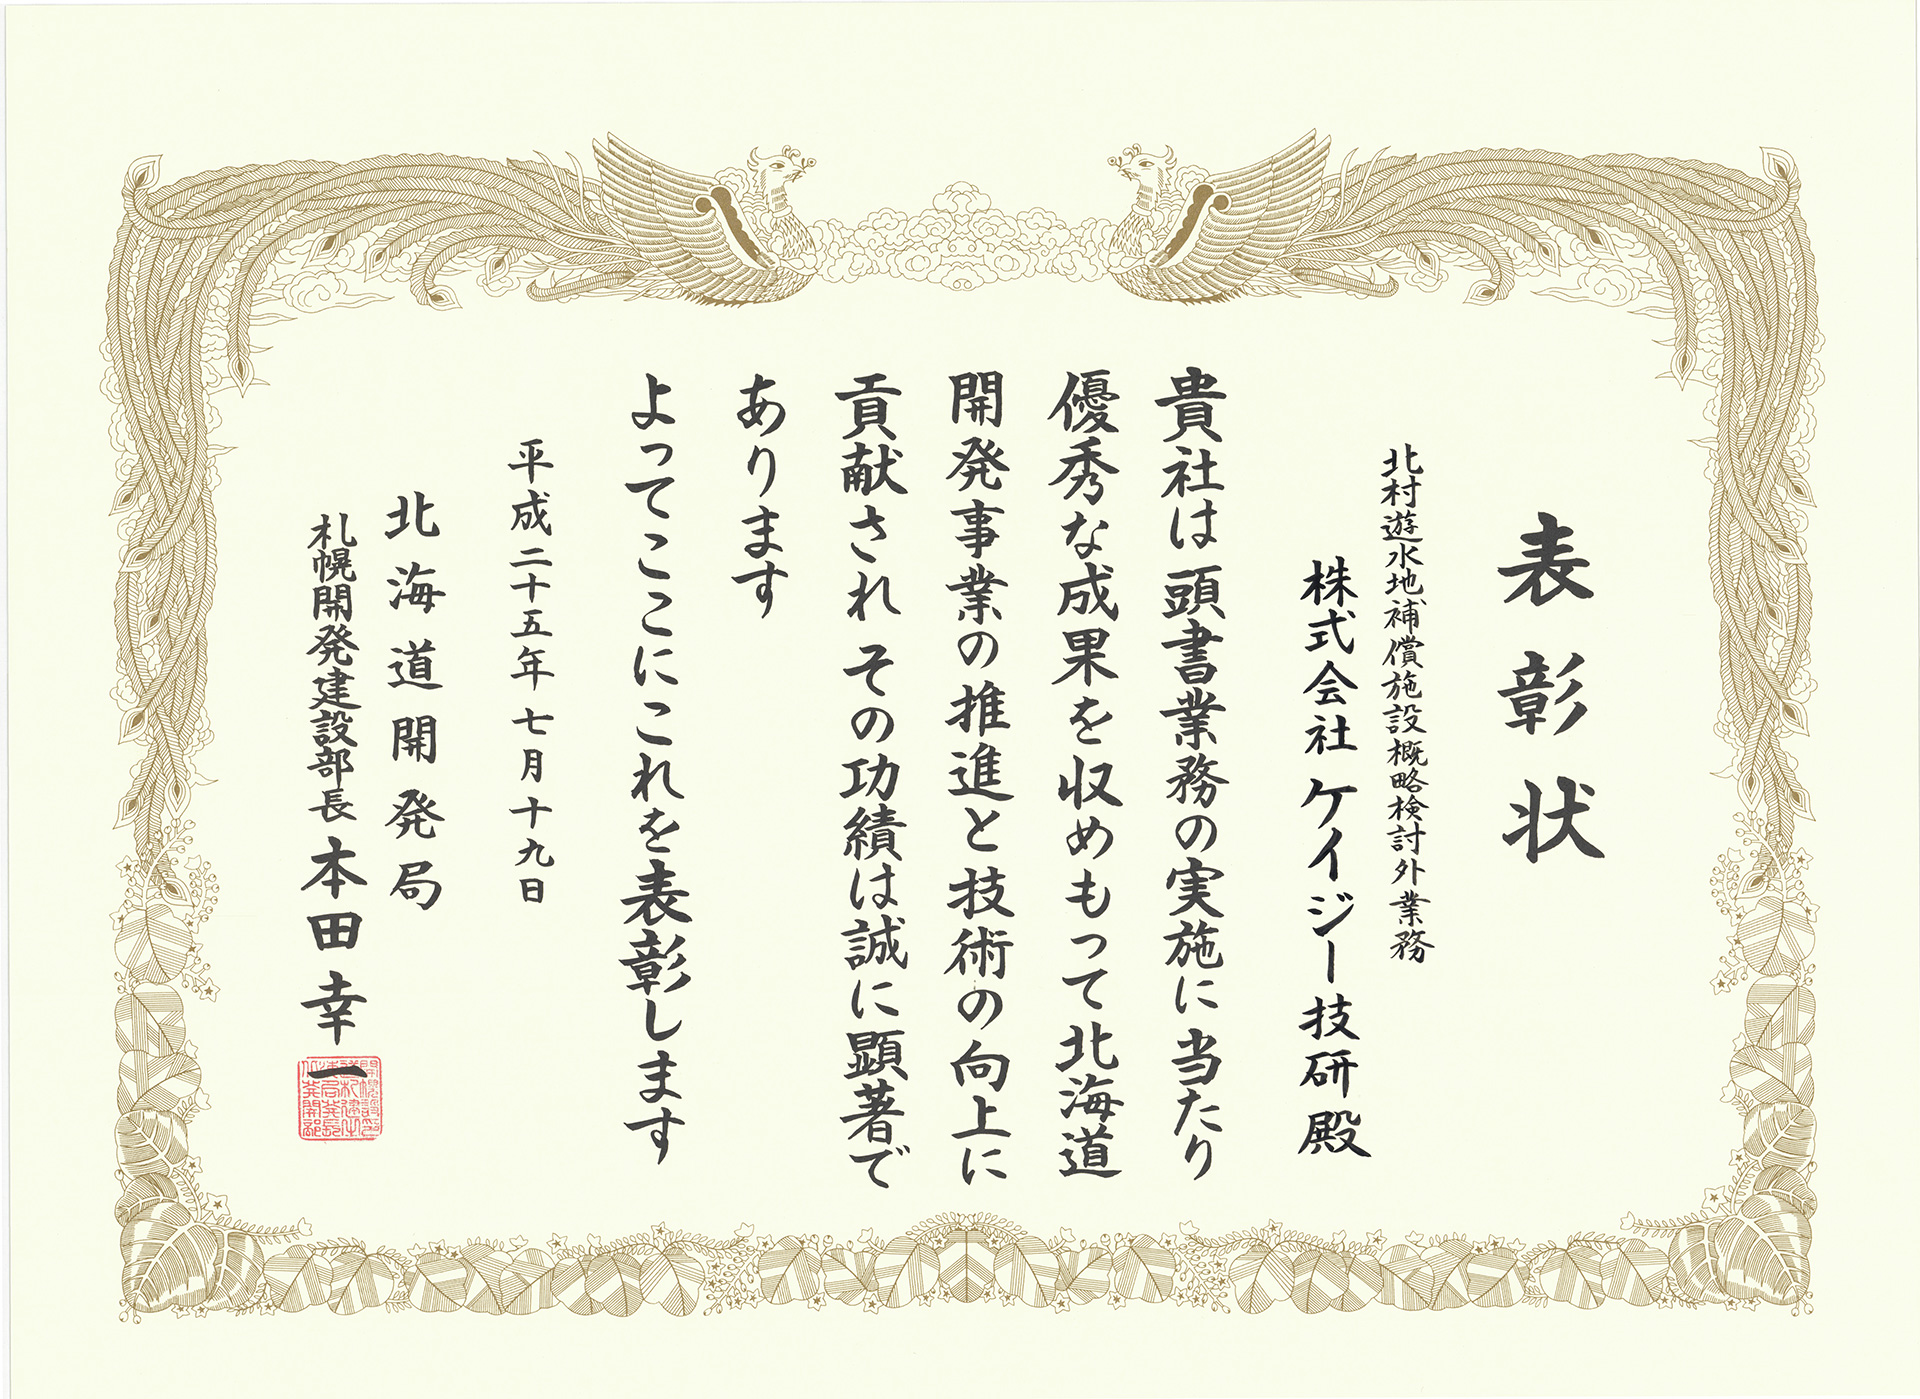 表彰状
北村遊水地補償施設概略検討外業務
株式会社ケイジー技研殿
貴社は頭書業務の実施に当たり
優秀な成果を収めもって北海道
開発事業の推進と技術の向上に
貢献され その功績は誠に顕著で
あります
よってここにこれを表彰します
平成二十五年七月十九日
北海道開発局
札幌開発建設部長 本田幸一